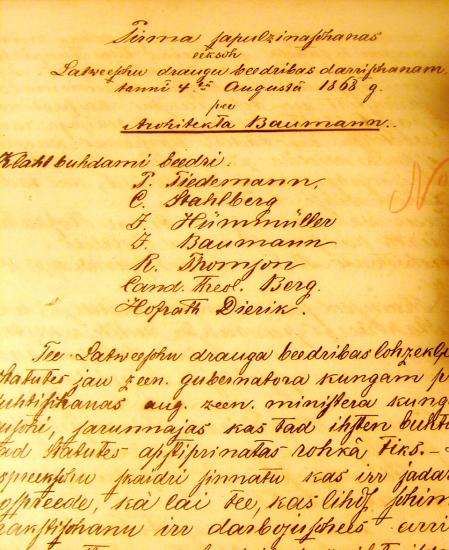 Pirma sapulzinaschanas
eeksch
Latweeschu draugu beedribas darrischanam
tanni 4tā Augusta 1868 g.
pee
Architekta Baumann.
Klaht buhdami beedri:
P. Tiedemann,
C. Stahlberg
J. Hümmüller
J. Baumann
R. Thomson
Cand. Theol. Berg.
Hofrath Dierik.
No
Tee Latweeschu drauga beedribas lohzekli
Statutes jau zeen. gubernatora kungam p
aug. zeen. ministera kung
jarunnajas kas tad ihsten buht
tad Statutes apstiprinatas rohkâ tiks. –
skaidri sinnatu kas irr jadar
kà lai tee, kas lihds schim
irr darbojuschees arri